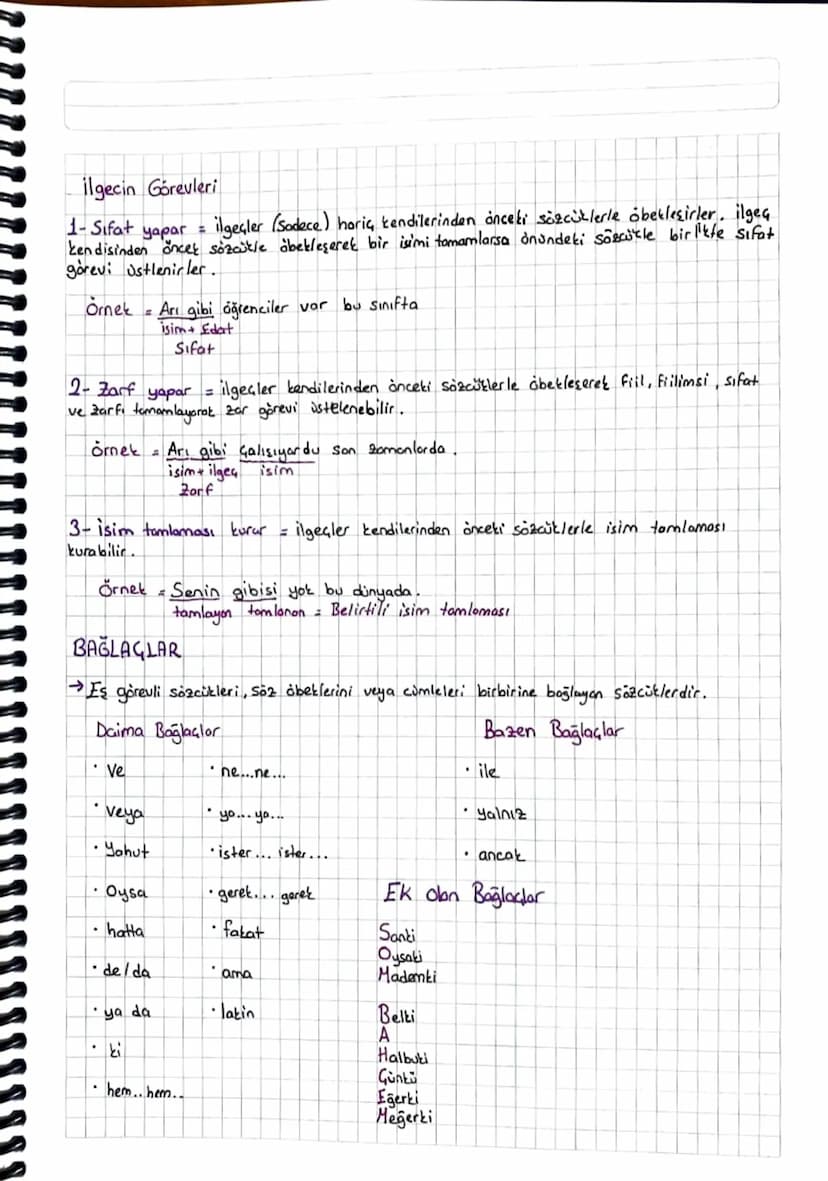 İlgecin Görevleri
1- Sıfat yapar = ilgeçler (Sadece) hariç kendilerinden önceki sözcüklerle öbekleşirler. ilgeç
kendisinden öncek sözcükle öbekleşerek bir isimi tamamlarsa önündeki sözcükle birlikte sıfat
görevi üstlenirler.
Örnek = Arı gibi öğrenciler var bu sınıfta
isim + Edat
Sıfat
2- Zarf yapar = ilgeçler kendilerinden önceki sözcüklerle öbekleşerek fiil, fiilimsi, sıfat
ve zarfı tamamlayarak zar görevi üstelenebilir.
örnek = Arı gibi çalışıyordu son zamanlarda.
isim + ilgeç isim
Zarf
3- isim tamlaması kurar = ilgeçler kendilerinden önceki sözcüklerle isim tamlaması
kurabilir.
Örnek = Senin gibisi yok bu dünyada.
tamlayan tamlanan = Belirtili isim tamlaması
BAĞLAÇLAR
→ Eş görevli sözcükleri, söz öbeklerini veya cümleleri birbirine bağlayan sözcüklerdir.
Daima Bağlaçlar Bazen Bağlaçlar
• Ve • ne...ne... • ile
• veya • ya...ya... • yalnız
• Yahut • ister... ister... • ancak
• Oysa • gerek... gerek Ek olan Bağlaçlar
• hatta • fakat Sanki
Oysaki
• de/da • ama Mademki
• ya da • lakin Belki
A
• ki Halbuki
Çünkü
• hem.. hem.. Eğerki
Meğerki